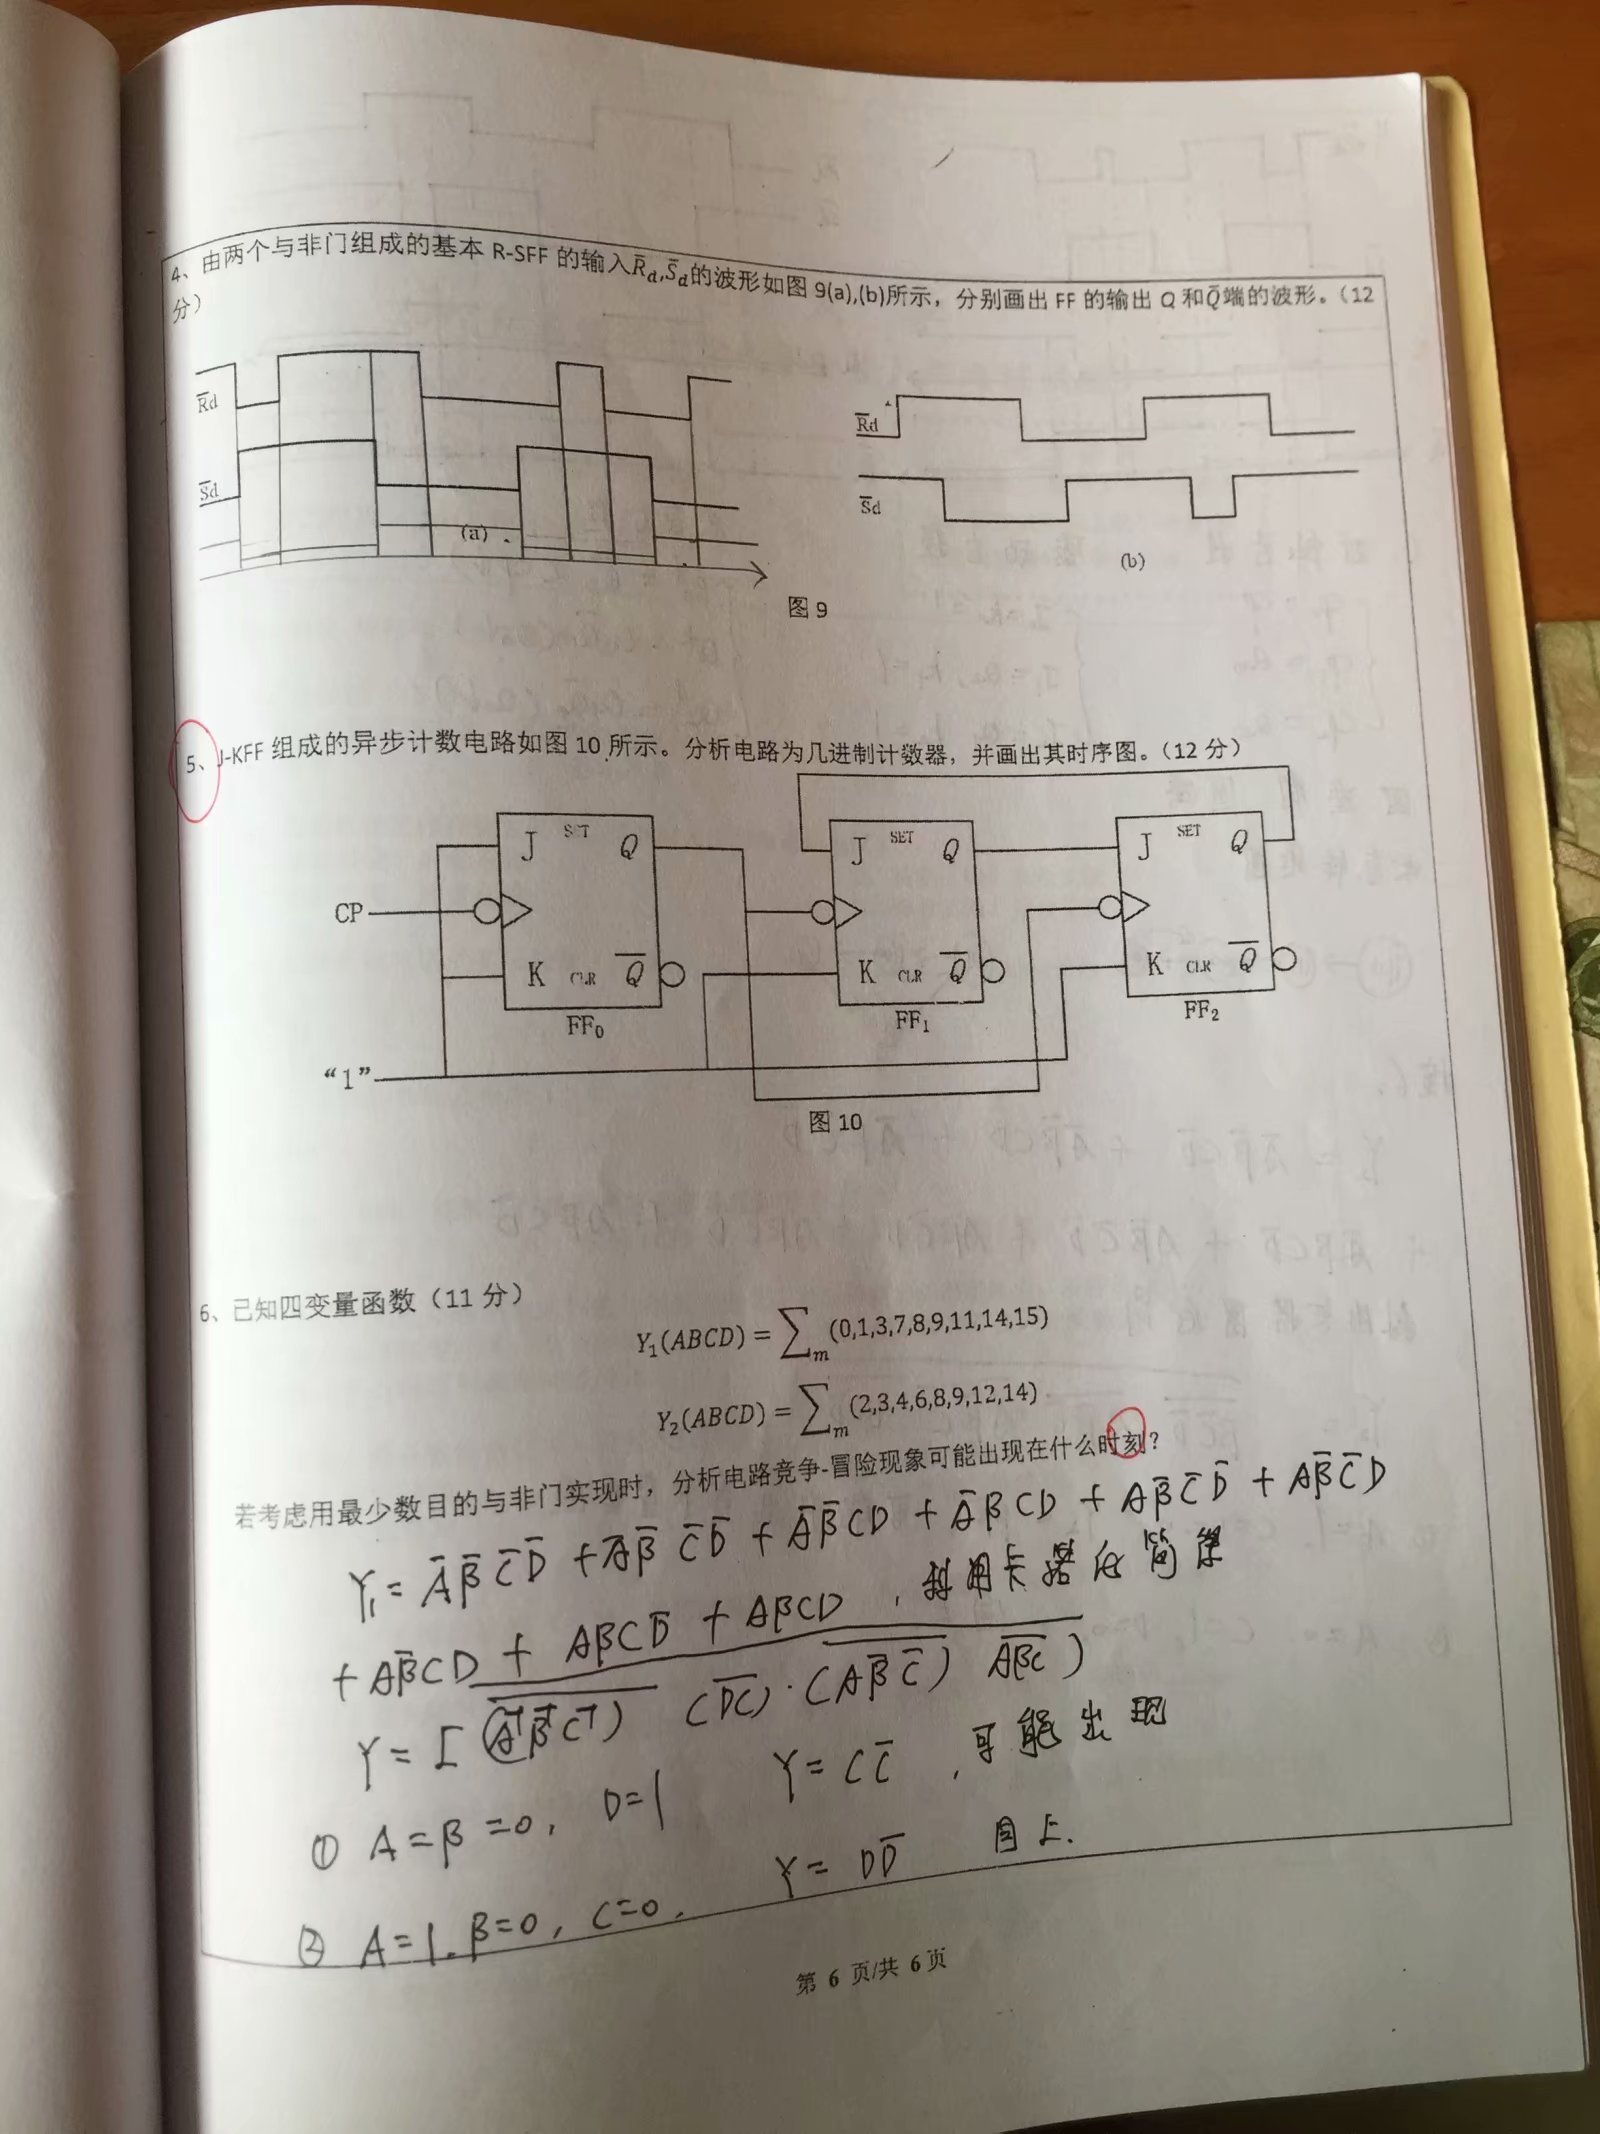 4、由两个与非门组成的基本 R-SFF 的输入R̅d,S̅d的波形如图 9(a),(b)所示，分别画出 FF 的输出 Q 和Q̅端的波形。（12
分）
R̅d
S̅d
(a)
R̅d
S̅d
(b)
图 9
5、J-KFF 组成的异步计数电路如图 10 所示。分析电路为几进制计数器，并画出其时序图。（12 分）
J SET Q
CP
K CLR Q̅
FF0
J SET Q
K CLR Q̅
FF1
J SET Q
K CLR Q̅
FF2
“1”
图 10
6、已知四变量函数（11 分）
Y1(ABCD) = ∑m (0,1,3,7,8,9,11,14,15)
Y2(ABCD) = ∑m (2,3,4,6,8,9,12,14)
若考虑用最少数目的与非门实现时，分析电路竞争-冒险现象可能出现在什么时刻？
Y1 = A̅B̅C̅D̅ + A̅B̅C̅D̅ + A̅B̅CD + A̅BCD + AB̅C̅D̅ + AB̅C̅D
+ AB̅CD + ABCD̅ + ABCD , 利用卡诺 化简
Y = [ (A̅B̅C̅) (DC)·(AB̅C̅) ABC )
① A=B=0, D=1 Y=CC̅ , 可能出现
② A=1, B=0, C=0, Y=DD̅ 同上.
第 6 页/共 6 页